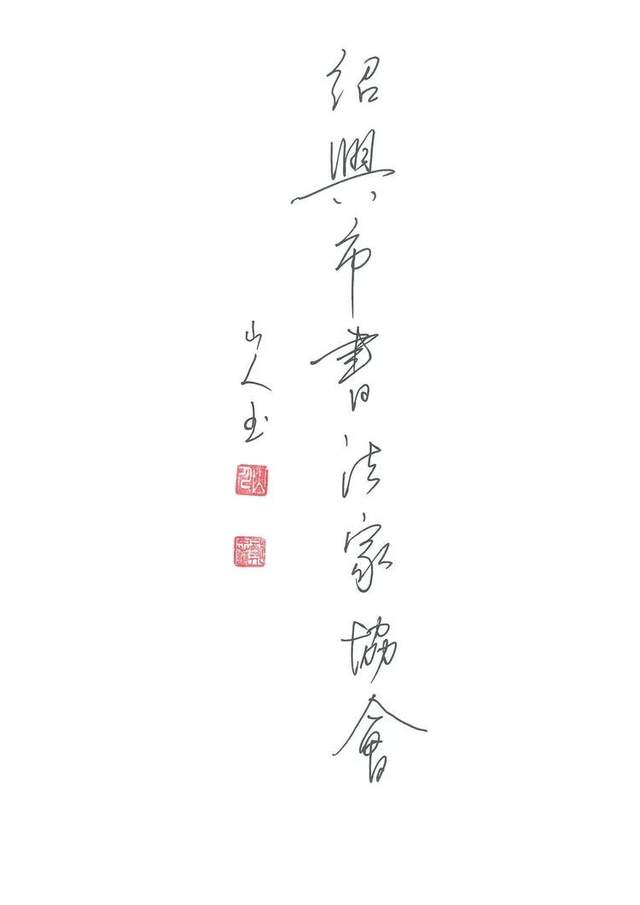 紹興市書法家協會
山人玉